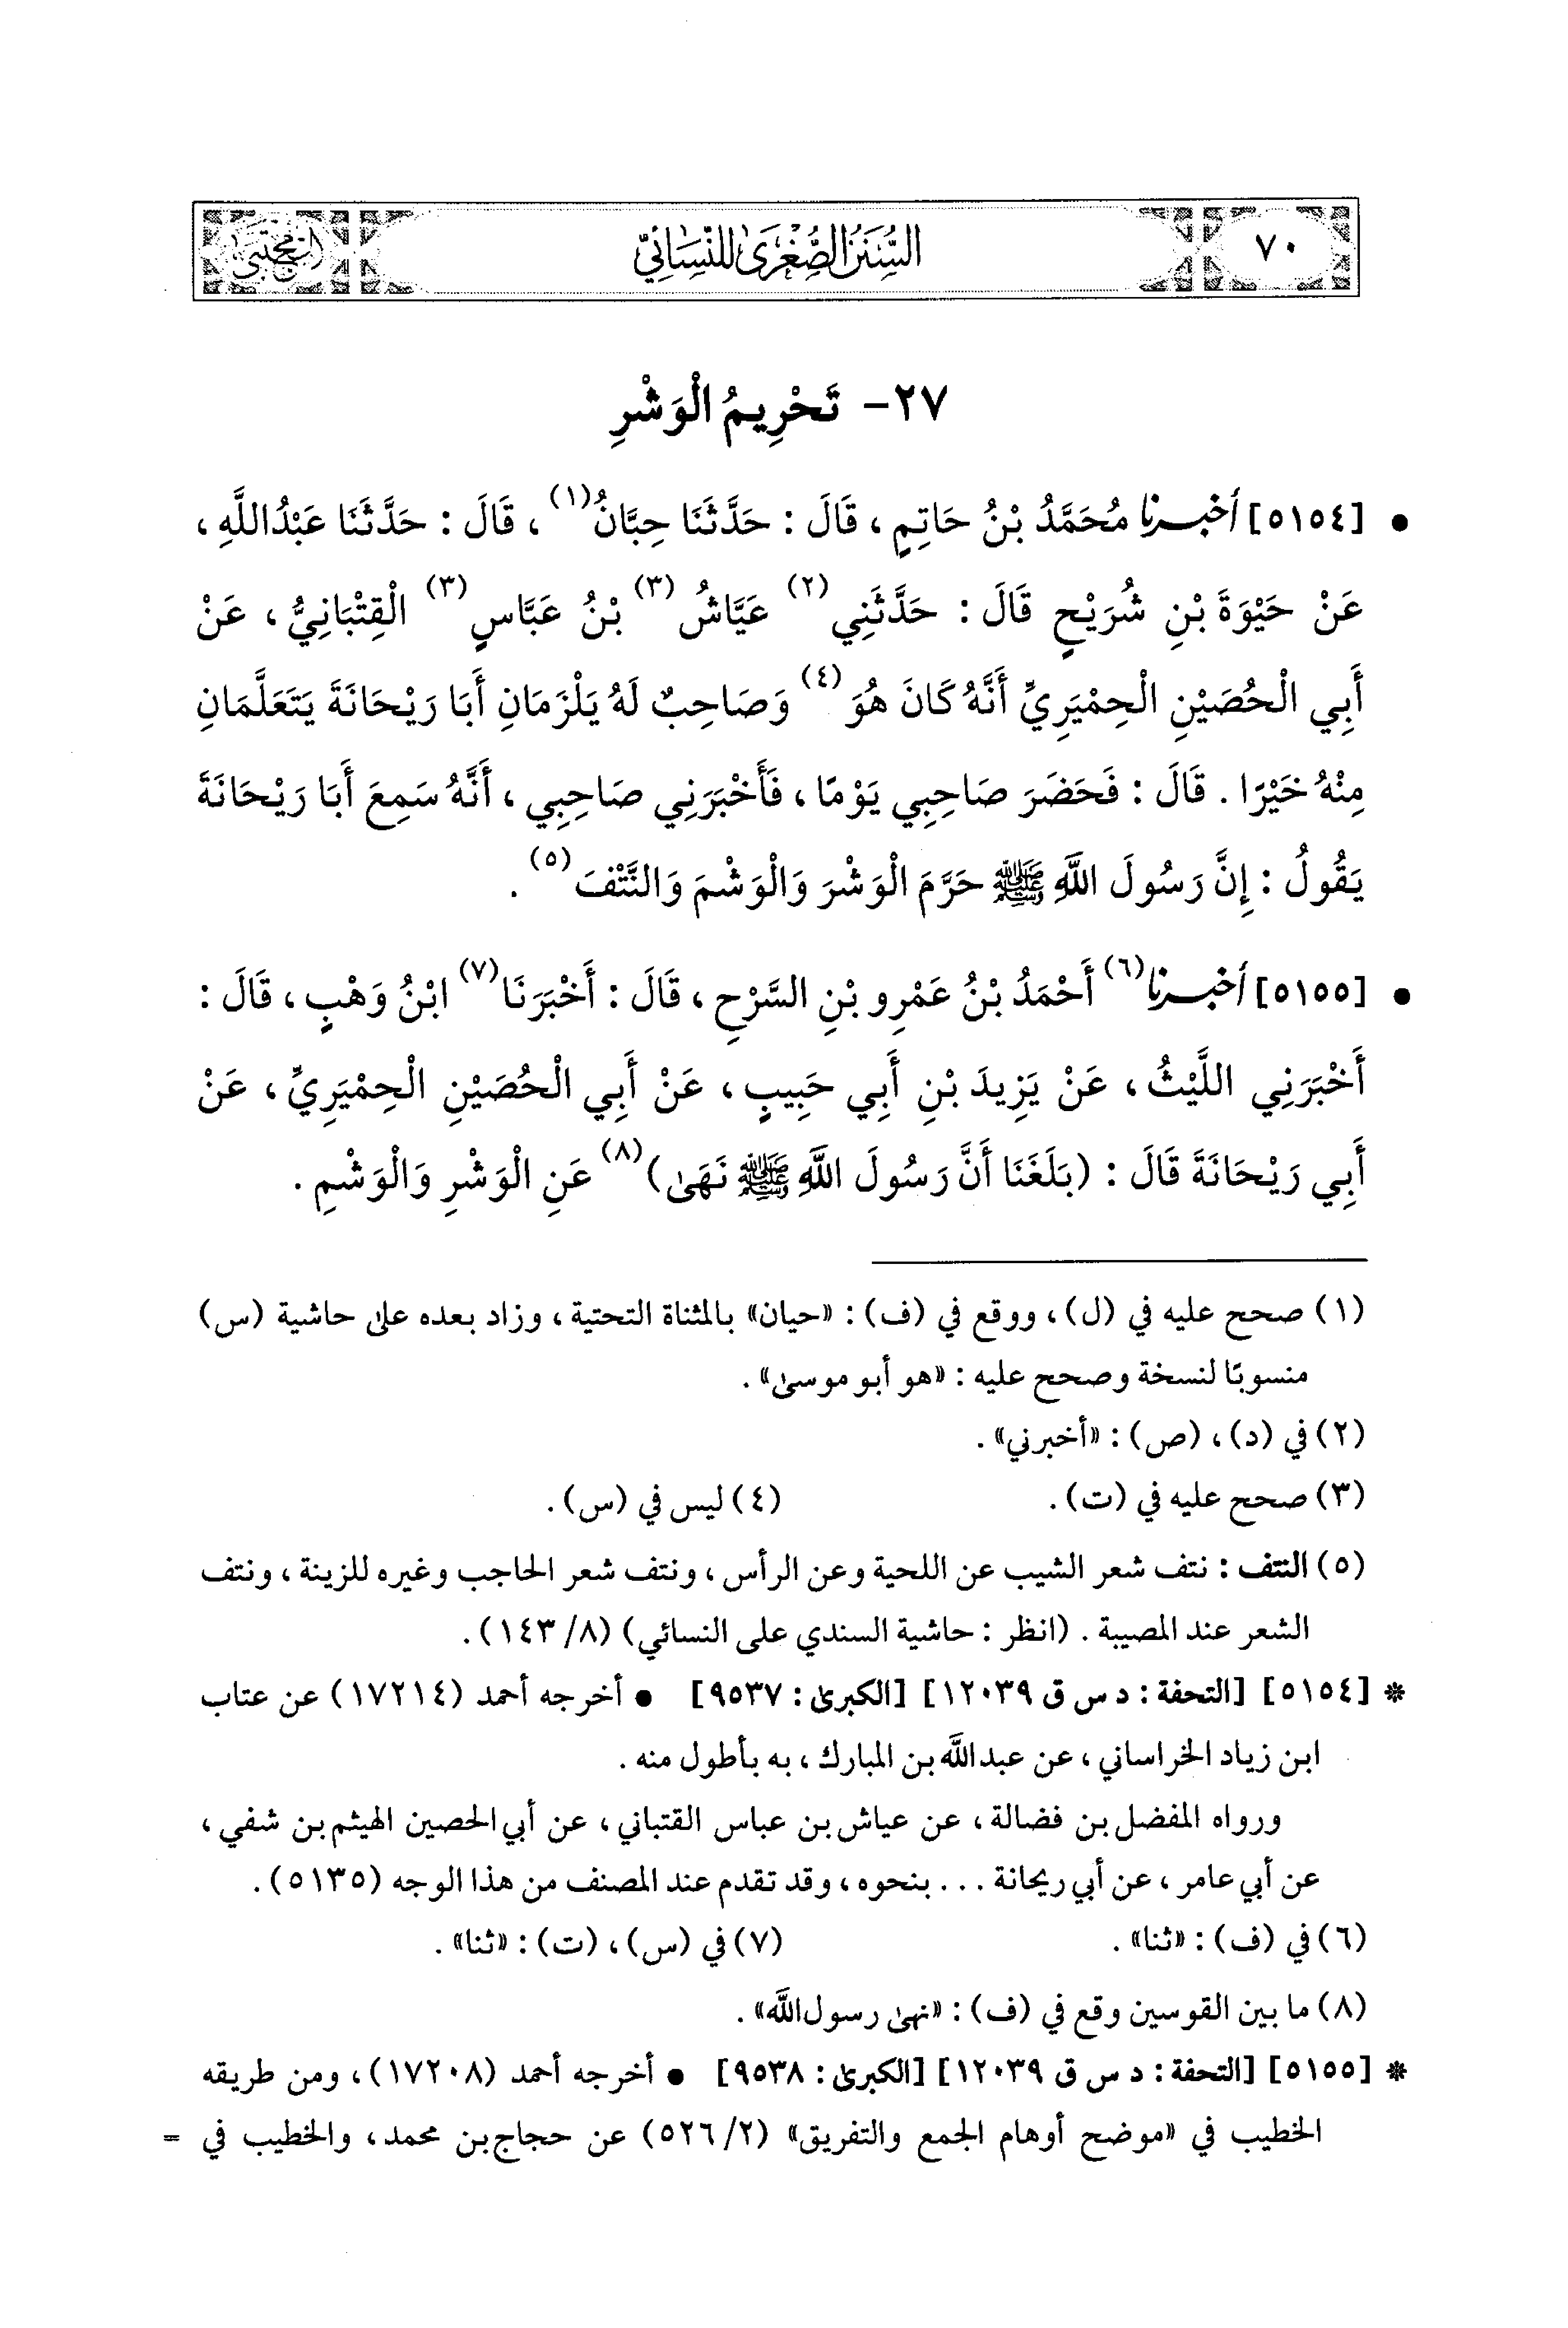 ٧٠
السُّنَنُ الصُّغْرَىٰ لِلنَّسَائِيِّ
المجتبى
٢٧- تَحْرِيمُ الْوَشْرِ
• [٥١٥٤] أَخْبَرَنَا مُحَمَّدُ بْنُ حَاتِمٍ ، قَالَ : حَدَّثَنَا حِبَّانُ (١) ، قَالَ : حَدَّثَنَا عَبْدُاللَّهِ ،
عَنْ حَيْوَةَ بْنِ شُرَيْحٍ قَالَ : حَدَّثَنِي (٢) عَيَّاشُ (٣) بْنُ عَبَّاسٍ (٣) الْقِتْبَانِيُّ ، عَنْ
أَبِي الْحُصَيْنِ الْحِمْيَرِيِّ أَنَّهُ كَانَ هُوَ (٤) وَصَاحِبٌ لَهُ يَلْزَمَانِ أَبَا رَيْحَانَةَ يَتَعَلَّمَانِ
مِنْهُ خَيْرًا . قَالَ : فَحَضَرَ صَاحِبِي يَوْمًا ، فَأَخْبَرَنِي صَاحِبِي ، أَنَّهُ سَمِعَ أَبَا رَيْحَانَةَ
يَقُولُ : إِنَّ رَسُولَ اللَّهِ ﷺ حَرَّمَ الْوَشْرَ وَالْوَشْمَ وَالنَّتْفَ (٥) .
• [٥١٥٥] أَخْبَرَنَا (٦) أَحْمَدُ بْنُ عَمْرِو بْنِ السَّرْحِ ، قَالَ : أَخْبَرَنَا (٧) ابْنُ وَهْبٍ ، قَالَ :
أَخْبَرَنِي اللَّيْثُ ، عَنْ يَزِيدَ بْنِ أَبِي حَبِيبٍ ، عَنْ أَبِي الْحُصَيْنِ الْحِمْيَرِيِّ ، عَنْ
أَبِي رَيْحَانَةَ قَالَ : (بَلَغَنَا أَنَّ رَسُولَ اللَّهِ ﷺ نَهَىٰ) (٨) عَنِ الْوَشْرِ وَالْوَشْمِ .
(١) صحح عليه في (ل) ، ووقع في (ف) : «حيان» بالمثناة التحتية ، وزاد بعده على حاشية (س)
منسوبًا لنسخة وصحح عليه : «هو أبو موسىٰ» .
(٢) في (د) ، (ص) : «أخبرني» .
(٣) صحح عليه في (ت) . (٤) ليس في (س) .
(٥) النتف : نتف شعر الشيب عن اللحية وعن الرأس ، ونتف شعر الحاجب وغيره للزينة ، ونتف
الشعر عند المصيبة . (انظر : حاشية السندي على النسائي) (٨/ ١٤٣) .
* [٥١٥٤] [التحفة : د س ق ١٢٠٣٩] [الكبرىٰ : ٩٥٣٧] • أخرجه أحمد (١٧٢١٤) عن عتاب
ابن زياد الخراساني ، عن عبدالله بن المبارك ، به بأطول منه .
ورواه المفضل بن فضالة ، عن عياش بن عباس القتباني ، عن أبي الحصين الهيثم بن شفي ،
عن أبي عامر ، عن أبي ريحانة . . . بنحوه ، وقد تقدم عند المصنف من هذا الوجه (٥١٣٥) .
(٦) في (ف) : «ثنا» . (٧) في (س) ، (ت) : «ثنا» .
(٨) ما بين القوسين وقع في (ف) : «نهىٰ رسول الله» .
* [٥١٥٥] [التحفة : د س ق ١٢٠٣٩] [الكبرىٰ : ٩٥٣٨] • أخرجه أحمد (١٧٢٠٨) ، ومن طريقه
الخطيب في «موضح أوهام الجمع والتفريق» (٢/ ٥٢٦) عن حجاج بن محمد ، والخطيب في =